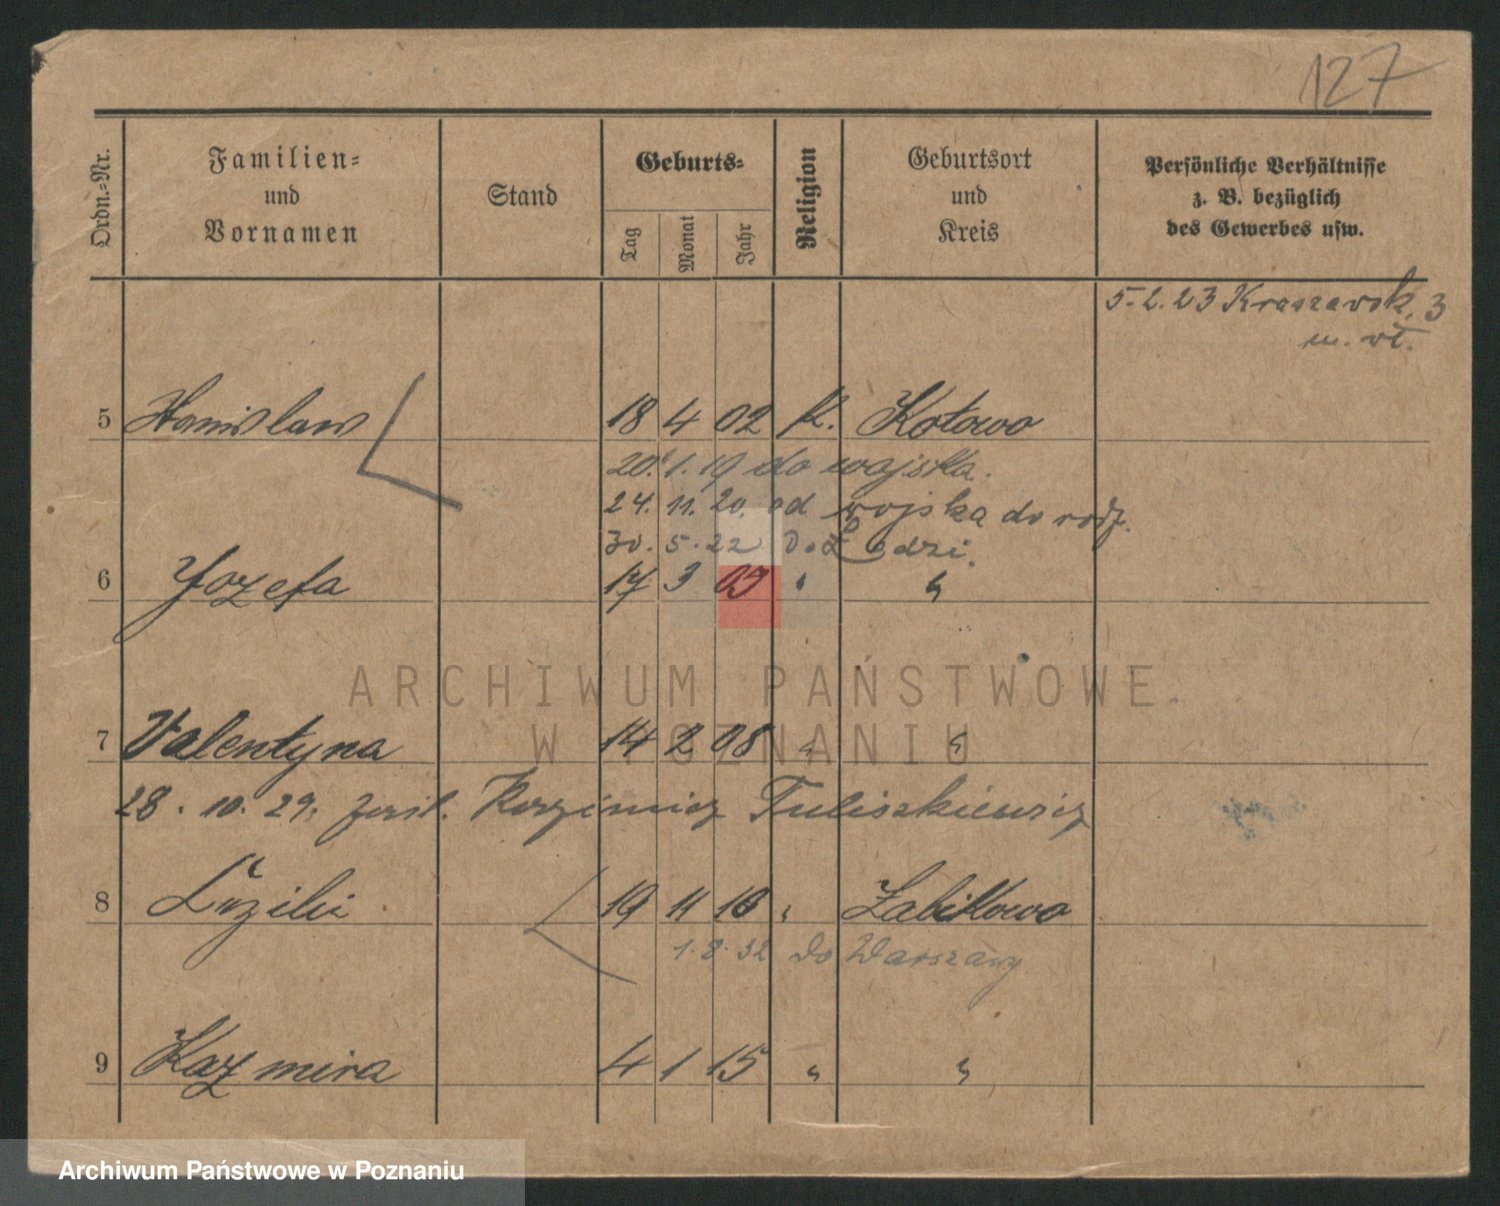 127
Ordn.-Nr.
Familien-
und
Vornamen
Stand
Geburts-
Tag
Monat
Jahr
Religion
Geburtsort
und
Kreis
Persönliche Verhältnisse
z. B. bezüglich
des Gewerbes usw.
5.2.23 Kraszewsk. 3
m. wł.
5 Stanislaw 18 4 02 k. Kotowo
20. 1. 19 do wojska.
24. 11. 20. od wojska do rodz.
30. 5. 22 Do Łodzi.
6 Jozefa 17 3 05 " "
ARCHIWUM PAŃSTWOWE
W POZNANIU
7 Valentyna 14 2 08 " "
28. 10. 29. Kazimierz Tuliszkiewicz
8 19 11 10 " Zabikowo
1. 8. 32 do Warszawy
9 Kazmira 4 1 15 " "
Archiwum Państwowe w Poznaniu